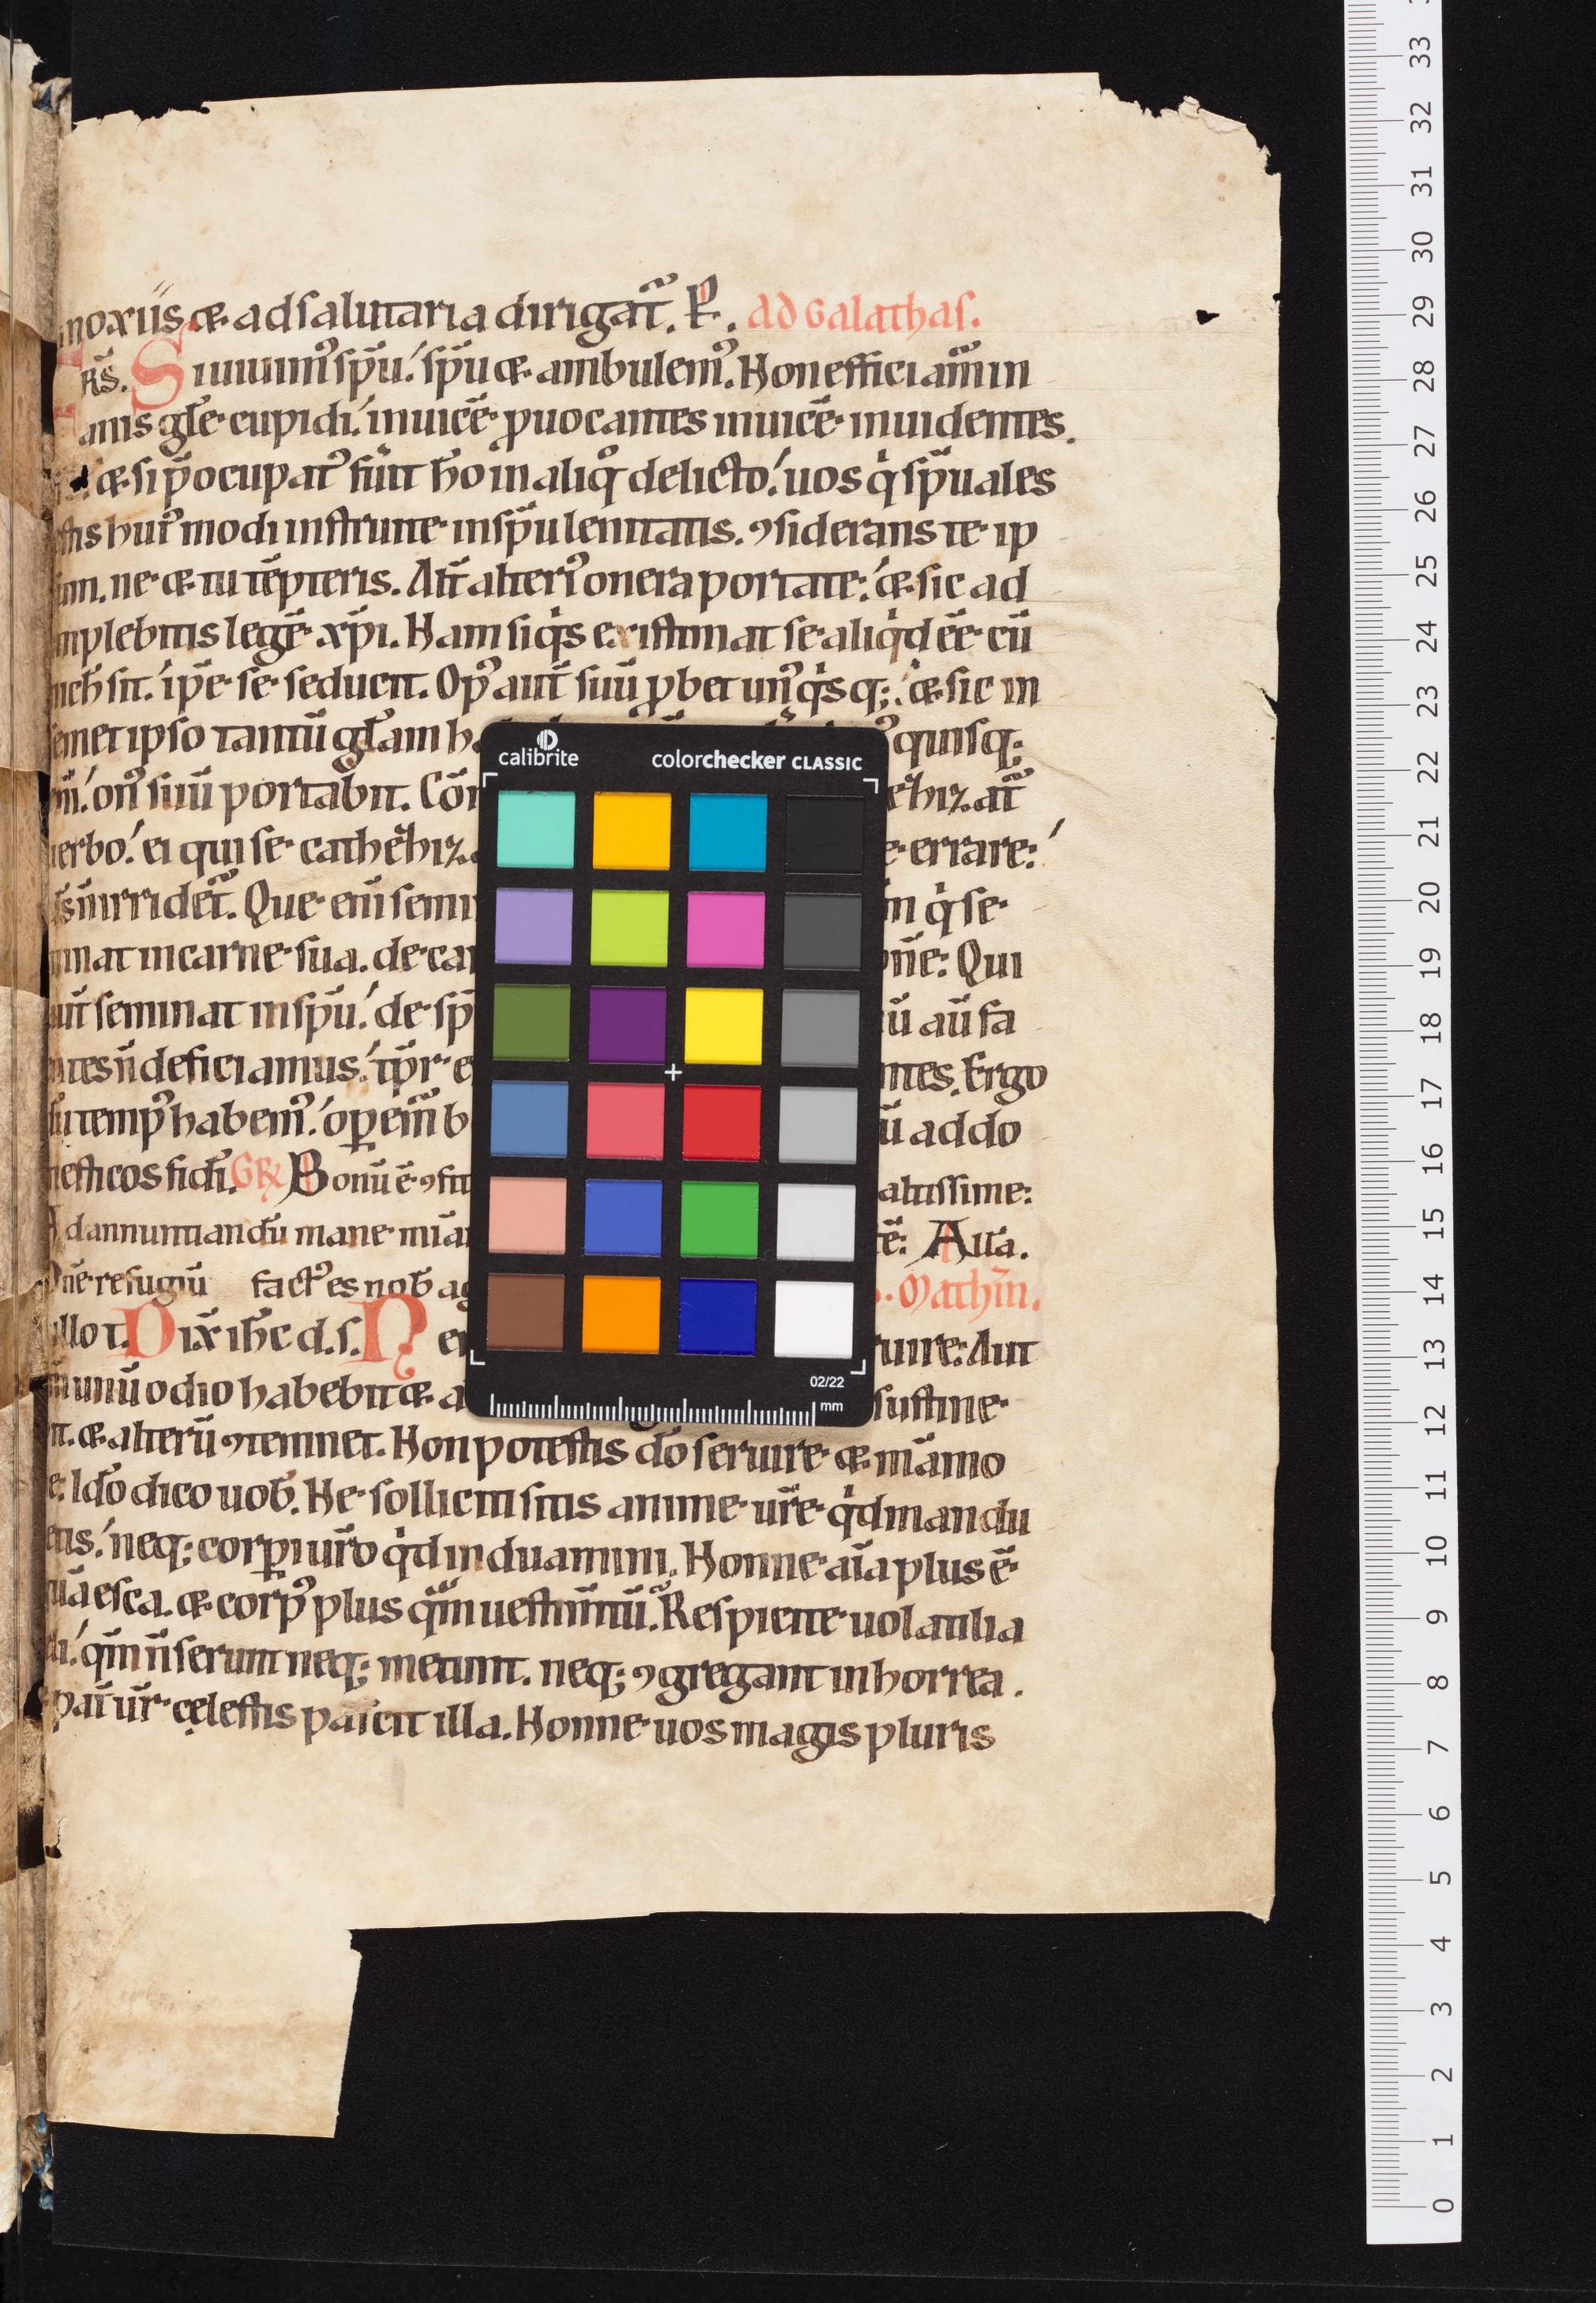 noxiis & ad salutaria dirigat̃. P̃. ad Galathas.
Rs̃. Si uiuim᷒ sp̄u. sp̄u & ambulem᷒. Non efficiam̃ in
anis gl̄e cupidi. inuicē puocantes inuicē inuidentes.
& si p̄ocupat᷒ fũit h̄o in aliqͦ delicto. uos qͥ sp̄uales
estis hui᷒ modi instruite in sp̄u lenitatis. ꝯsiderans te ip
ne & tu tēpteris. Alt̃ alteri᷒ onera portate: & sic ad
implebitis legē xp̄i. Nam siqͥs existimat se aliqͥd ēē cū
nich̄ sit. ip̄e se seducit. Op᷒ aut̃ suū ꝓbet un᷒ qͥsq; & sic in
semet ipso tantū gl̄am ha quisq;
on᷒ suū portabit. Cōm ethiz.at̃
uerbo. ei qui se cathethiz. errare:
irridet̃. Que eñi semi qͥ se
minat in carne sua. de car Qui
aut̃ seminat in sp̄u. de sp̄ aū fa
ntes ñ deficiamus. tp̄r e ntes. Ergo
temp᷒ habem᷒. oꝑem̃ b ū ad do
mesticos fidi. GR̃ Bonū ē ꝯfit altissime:
Ad annuntiandū mane mīam Alla.
Dñe refugiū fact᷒ es nob̄ a Math̄m.
illo t. Dix̃ ih̄c d.s. Ne uire: Aut
unū odio habebit & a sustine
& alterū ꝯtemnet. Non potestis dō seruire & māmo
e. Idō dico uob̄. Ne solliciti sitis anime ur̄e qͥd mandu
etis. neq; corꝑi ur̄o qͥd induamini. Nonne aīa plus ē
quā esca. & corp᷒ plus qͣm uestim̄tū. Respicite uolatilia
celi. qm̃ ñ serunt neq; metunt. neq; ꝯgregant in horrea.
pat̄ ur̄ cęlestis pascit illa. Nonne uos magis pluris
calibrite colorchecker CLASSIC
02/22
mm
33
32
31
30
29
28
27
26
25
24
23
22
21
20
19
18
17
16
15
14
13
12
11
10
9
8
7
6
5
4
3
2
1
0